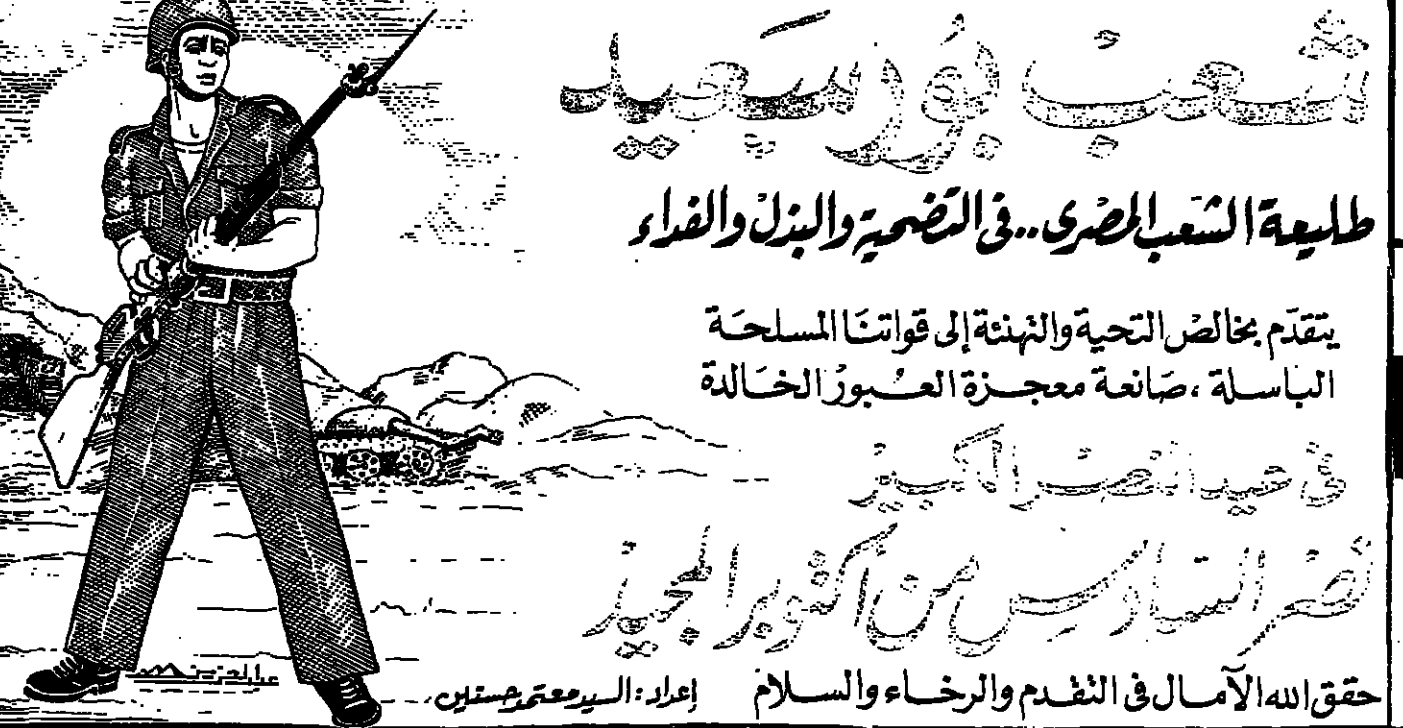 شعب بورسعيد
طليعة الشعب المصرى.. فى التضحية والبذل والفداء
يتقدم بخالص التحية والتهنئة إلى قواتنا المسلحة
الباسلة ، صانعة معجزة العبور الخالدة
فى عيد النصر الكبير
نصر السادس من أكتوبر المجيد
حقق الله الآمال فى التقدم والرخاء والسلام
إعداد : السيد معتمد حسنين